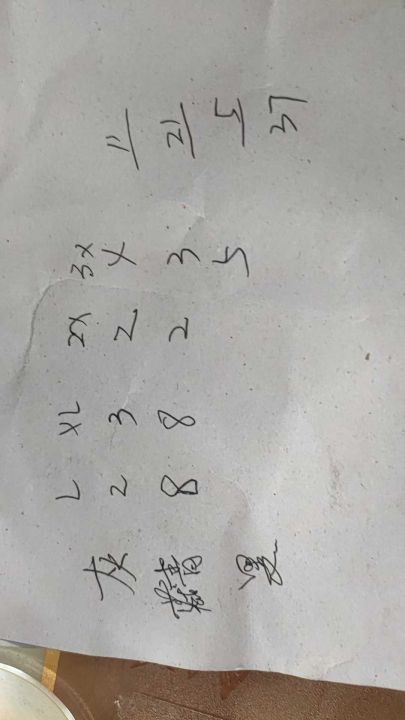 L XL 2X 3X
灰 2 3 2 4 11
藏青 8 8 2 3 21
黑 5 5
37